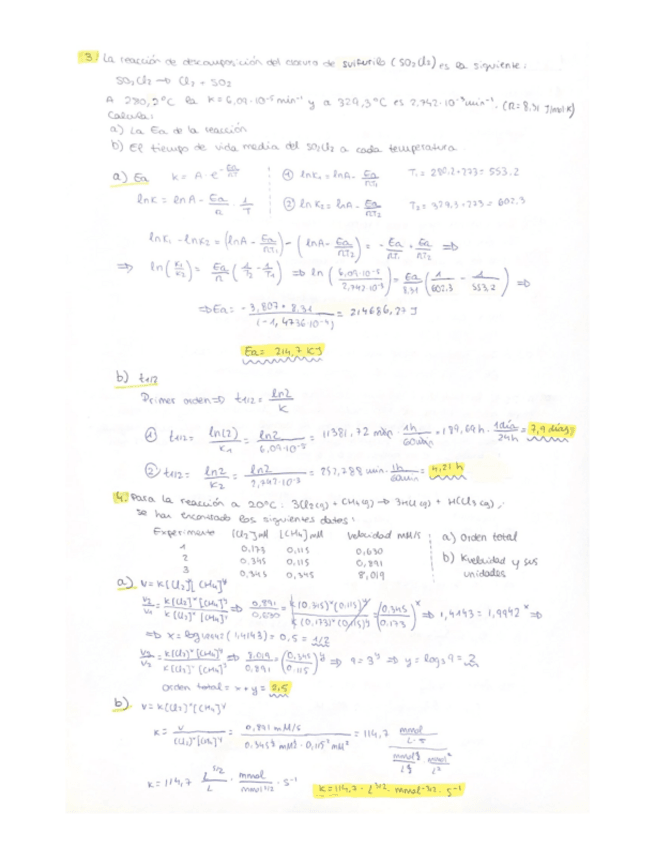 3. La reacción de descomposición del cloruro de sulfurilo (SO2Cl2) es la siguiente:
SO2Cl2 → Cl2 + SO2
A 280,2ºC la K=6,09·10⁻⁵ min⁻¹ y a 329,3ºC es 2,742·10⁻³ min⁻¹. (R=8,31 J/mol K)
Calcula:
a) La Ea de la reacción
b) El tiempo de vida media del SO2Cl2 a cada temperatura
a) Ea K = A·e^(-Ea/RT) ① lnK1 = lnA - Ea/RT1 T1 = 280.2+273 = 553.2
lnK = lnA - Ea/R · 1/T ② lnK2 = lnA - Ea/RT2 T2 = 329,3+273 = 602.3
lnK1 - lnK2 = (lnA - Ea/RT1) - (lnA - Ea/RT2) = - Ea/RT1 + Ea/RT2 ⇒
⇒ ln(K1/K2) = Ea/R (1/T2 - 1/T1) ⇒ ln(6,09·10⁻⁵/2,742·10⁻³) = Ea/8.31 (1/602.3 - 1/553,2) ⇒
⇒ Ea = -3,807 · 8.31/(-1,4736·10⁻⁴) = 214686,27 J
Ea = 214,7 KJ
b) t1/2
Primer orden ⇒ t1/2 = ln2/K
① t1/2 = ln(2)/K1 = ln2/6,09·10⁻⁵ = 11381,72 min · 1h/60min = 189,69h · 1día/24h = 7,9 días
② t1/2 = ln2/K2 = ln2/2,742·10⁻³ = 252,788 min · 1h/60min = 4,21 h
4. Para la reacción a 20ºC: 3Cl2(g) + CH4(g) → 3HCl(g) + HCCl3(g),
se han encontrado los siguientes datos:
Experimento [Cl2] mM [CH4] mM Velocidad mM/s a) Orden total
1 0,173 0,115 0,630 b) Kvelocidad y sus unidades
2 0,345 0,115 0,891
3 0,345 0,345 8,019
a) V = K[Cl2]ˣ[CH4]ʸ
V2/V1 = K[Cl2]ˣ[CH4]ʸ/K[Cl2]ˣ[CH4]ʸ ⇒ 0,891/0,630 = K(0.345)ˣ(0,115)ʸ/K(0,173)ˣ(0,115)ʸ = (0,345/0.173)ˣ ⇒ 1,4143 = 1,9942ˣ ⇒
⇒ x = log1,9942(1,4143) = 0,5 = 1/2
V3/V2 = K[Cl2]ˣ[CH4]ʸ/K[Cl2]ˣ[CH4]ʸ ⇒ 8.019/0,891 = (0,345/0.115)ʸ ⇒ 9 = 3ʸ ⇒ y = log3 9 = 2
Orden total = x+y = 2.5
b) V = K[Cl2]ˣ[CH4]ʸ
K = V/[Cl2]ˣ[CH4]ʸ = 0,891 mM/s/0.345^½ mM^½ · 0,115² mM² = 114,7 mmol/L·s / mmol^½/L^½ · mmol²/L²
K = 114,7 L^5/2/L · mmol/mmol^5/2 · s⁻¹ K = 114,7 · L^3/2 · mmol^-3/2 · s⁻¹